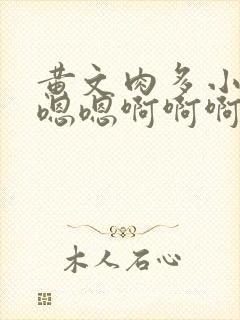 黄文肉多小
嗯嗯啊啊啊
木人石心